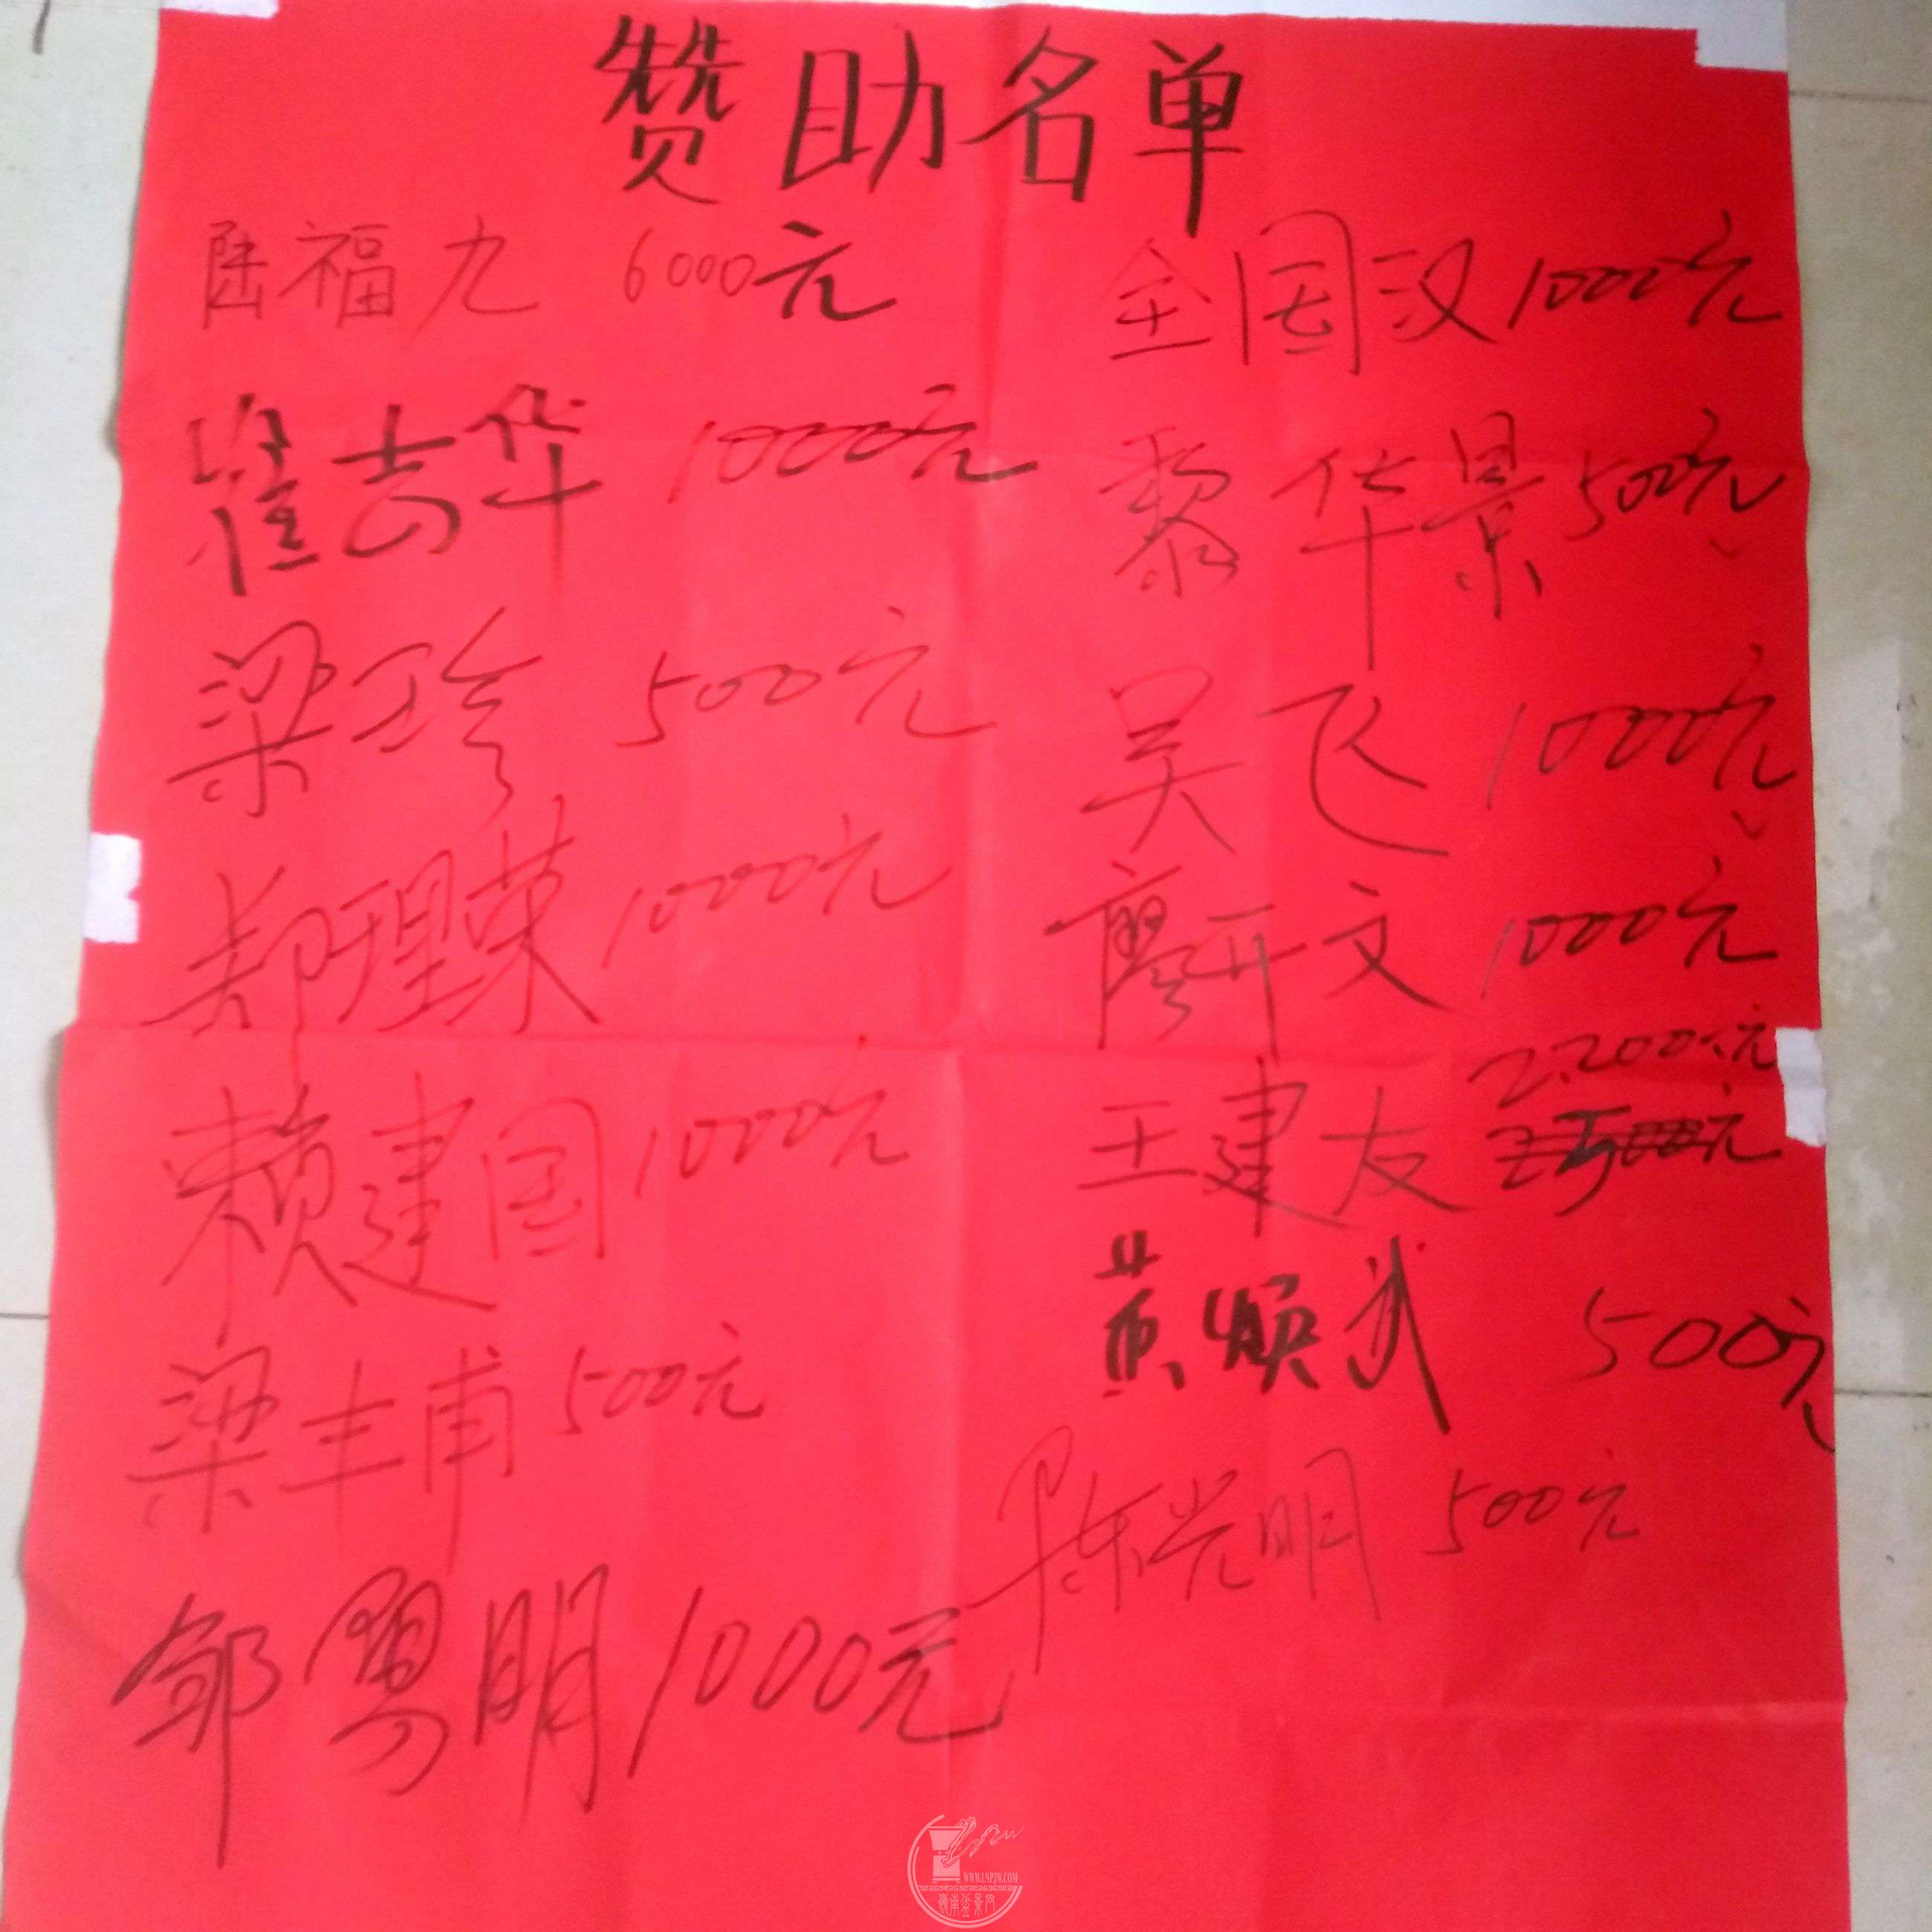 赞助名单
陆福九 6000元
崔吉华 1000元
梁珍 500元
郑理荣 1000元
赖建国 1000元
梁丰甫 500元
邹易明 1000元
全国汉 1000元
黎华景 500元
吴飞 1000元
廖开文 1000元
2200元
王建友
黄焕武 500元
陈光明 500元
WWW.LNPJW.COM
岭南盆景网